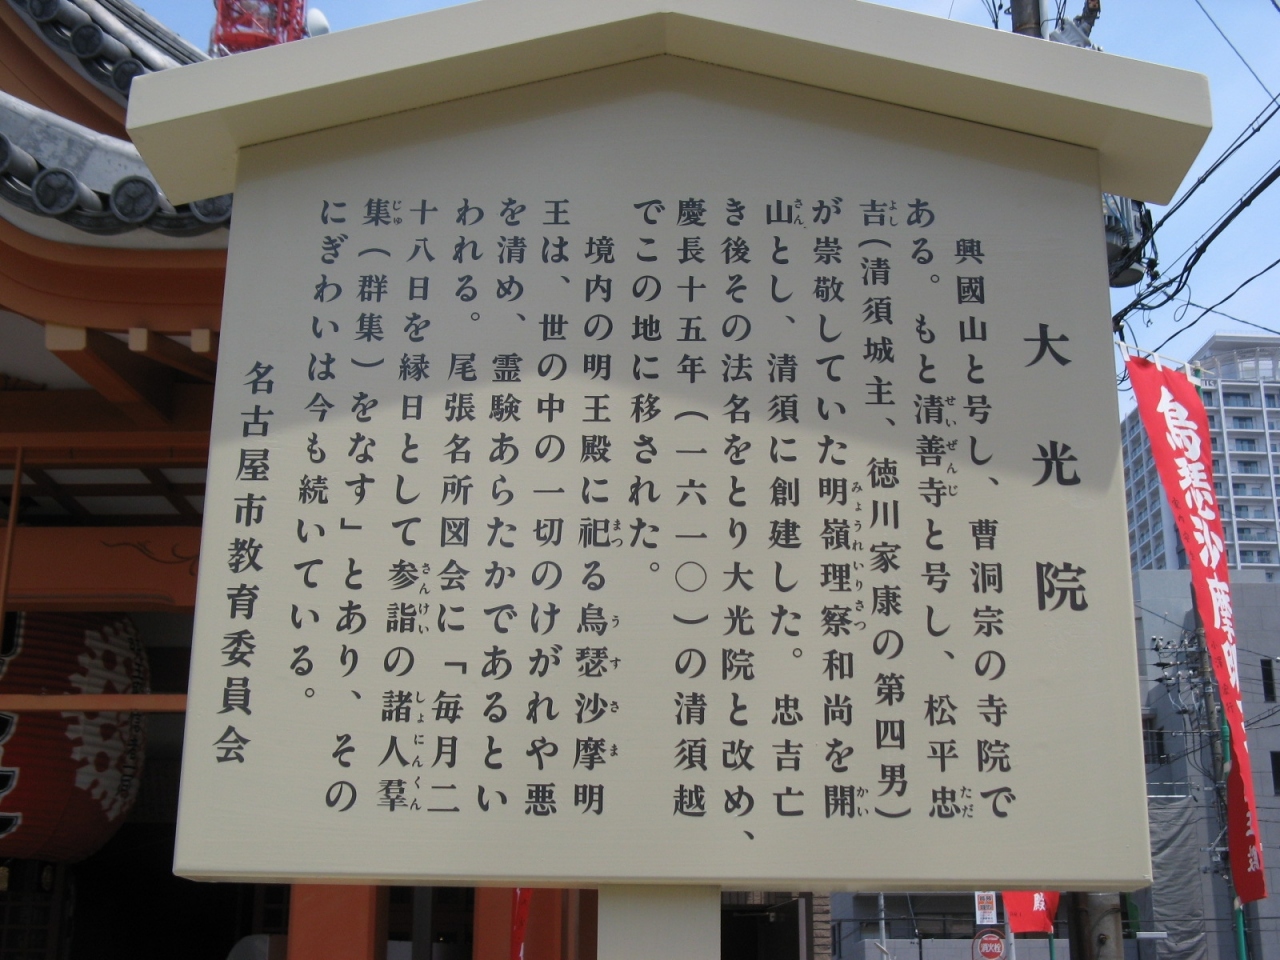 大光院
興國山と号し、曹洞宗の寺院で
ある。もと清善寺と号し、松平忠
吉(清須城主、徳川家康の第四男)
が崇敬していた明嶺理察和尚を開
山とし、清須に創建した。忠吉亡
き後その法名をとり大光院と改め、
慶長十五年(一六一〇)の清須越
でこの地に移された。
境内の明王殿に祀る烏瑟沙摩明
王は、世の中の一切のけがれや悪
を清め、霊験あらたかであるとい
われる。尾張名所図会に「毎月二
十八日を縁日として参詣の諸人羣
集(群集)をなす」とあり、その
にぎわいは今も続いている。
名古屋市教育委員会
烏瑟沙摩明
王殿
殿
消火栓